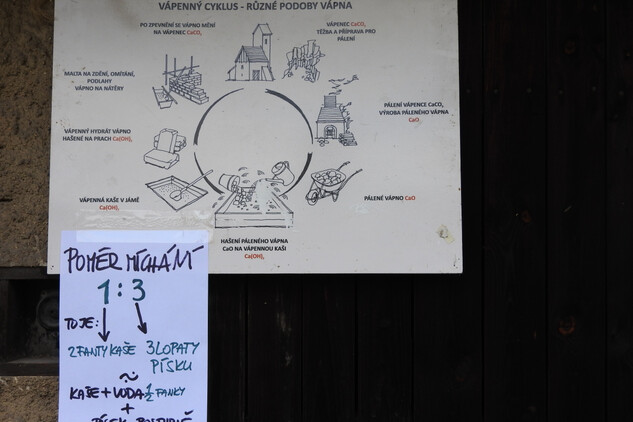 VÁPENNÝ CYKLUS - RŮZNÉ PODOBY VÁPNA
PO ZPEVNĚNÍ SE VÁPNO MĚNÍ
NA VÁPENEC CaCO₃
VÁPENEC CaCO₃
TĚŽBA A PŘÍPRAVA PRO
PÁLENÍ
MALTA NA ZDĚNÍ, OMÍTÁNÍ,
PODLAHY
VÁPNO NA NÁTĚRY
PÁLENÍ VÁPENCE CaCO₃
VÝROBA PÁLENÉHO VÁPNA
CaO
VÁPENNÝ HYDRÁT VÁPNO
HAŠENÉ NA PRACH Ca(OH)₂
VÁPENNÁ KAŠE V JÁMĚ
Ca(OH)₂
PÁLENÉ VÁPNO CaO
HAŠENÍ PÁLENÉHO VÁPNA
CaO NA VÁPENNOU KAŠI
Ca(OH)₂
POMĚR MÍCHÁNÍ
1 : 3
TO JE:
2 FANTY KAŠE 3 LOPATY
PÍSKU
~
KAŠE + VODA 1/2 FANKY
+